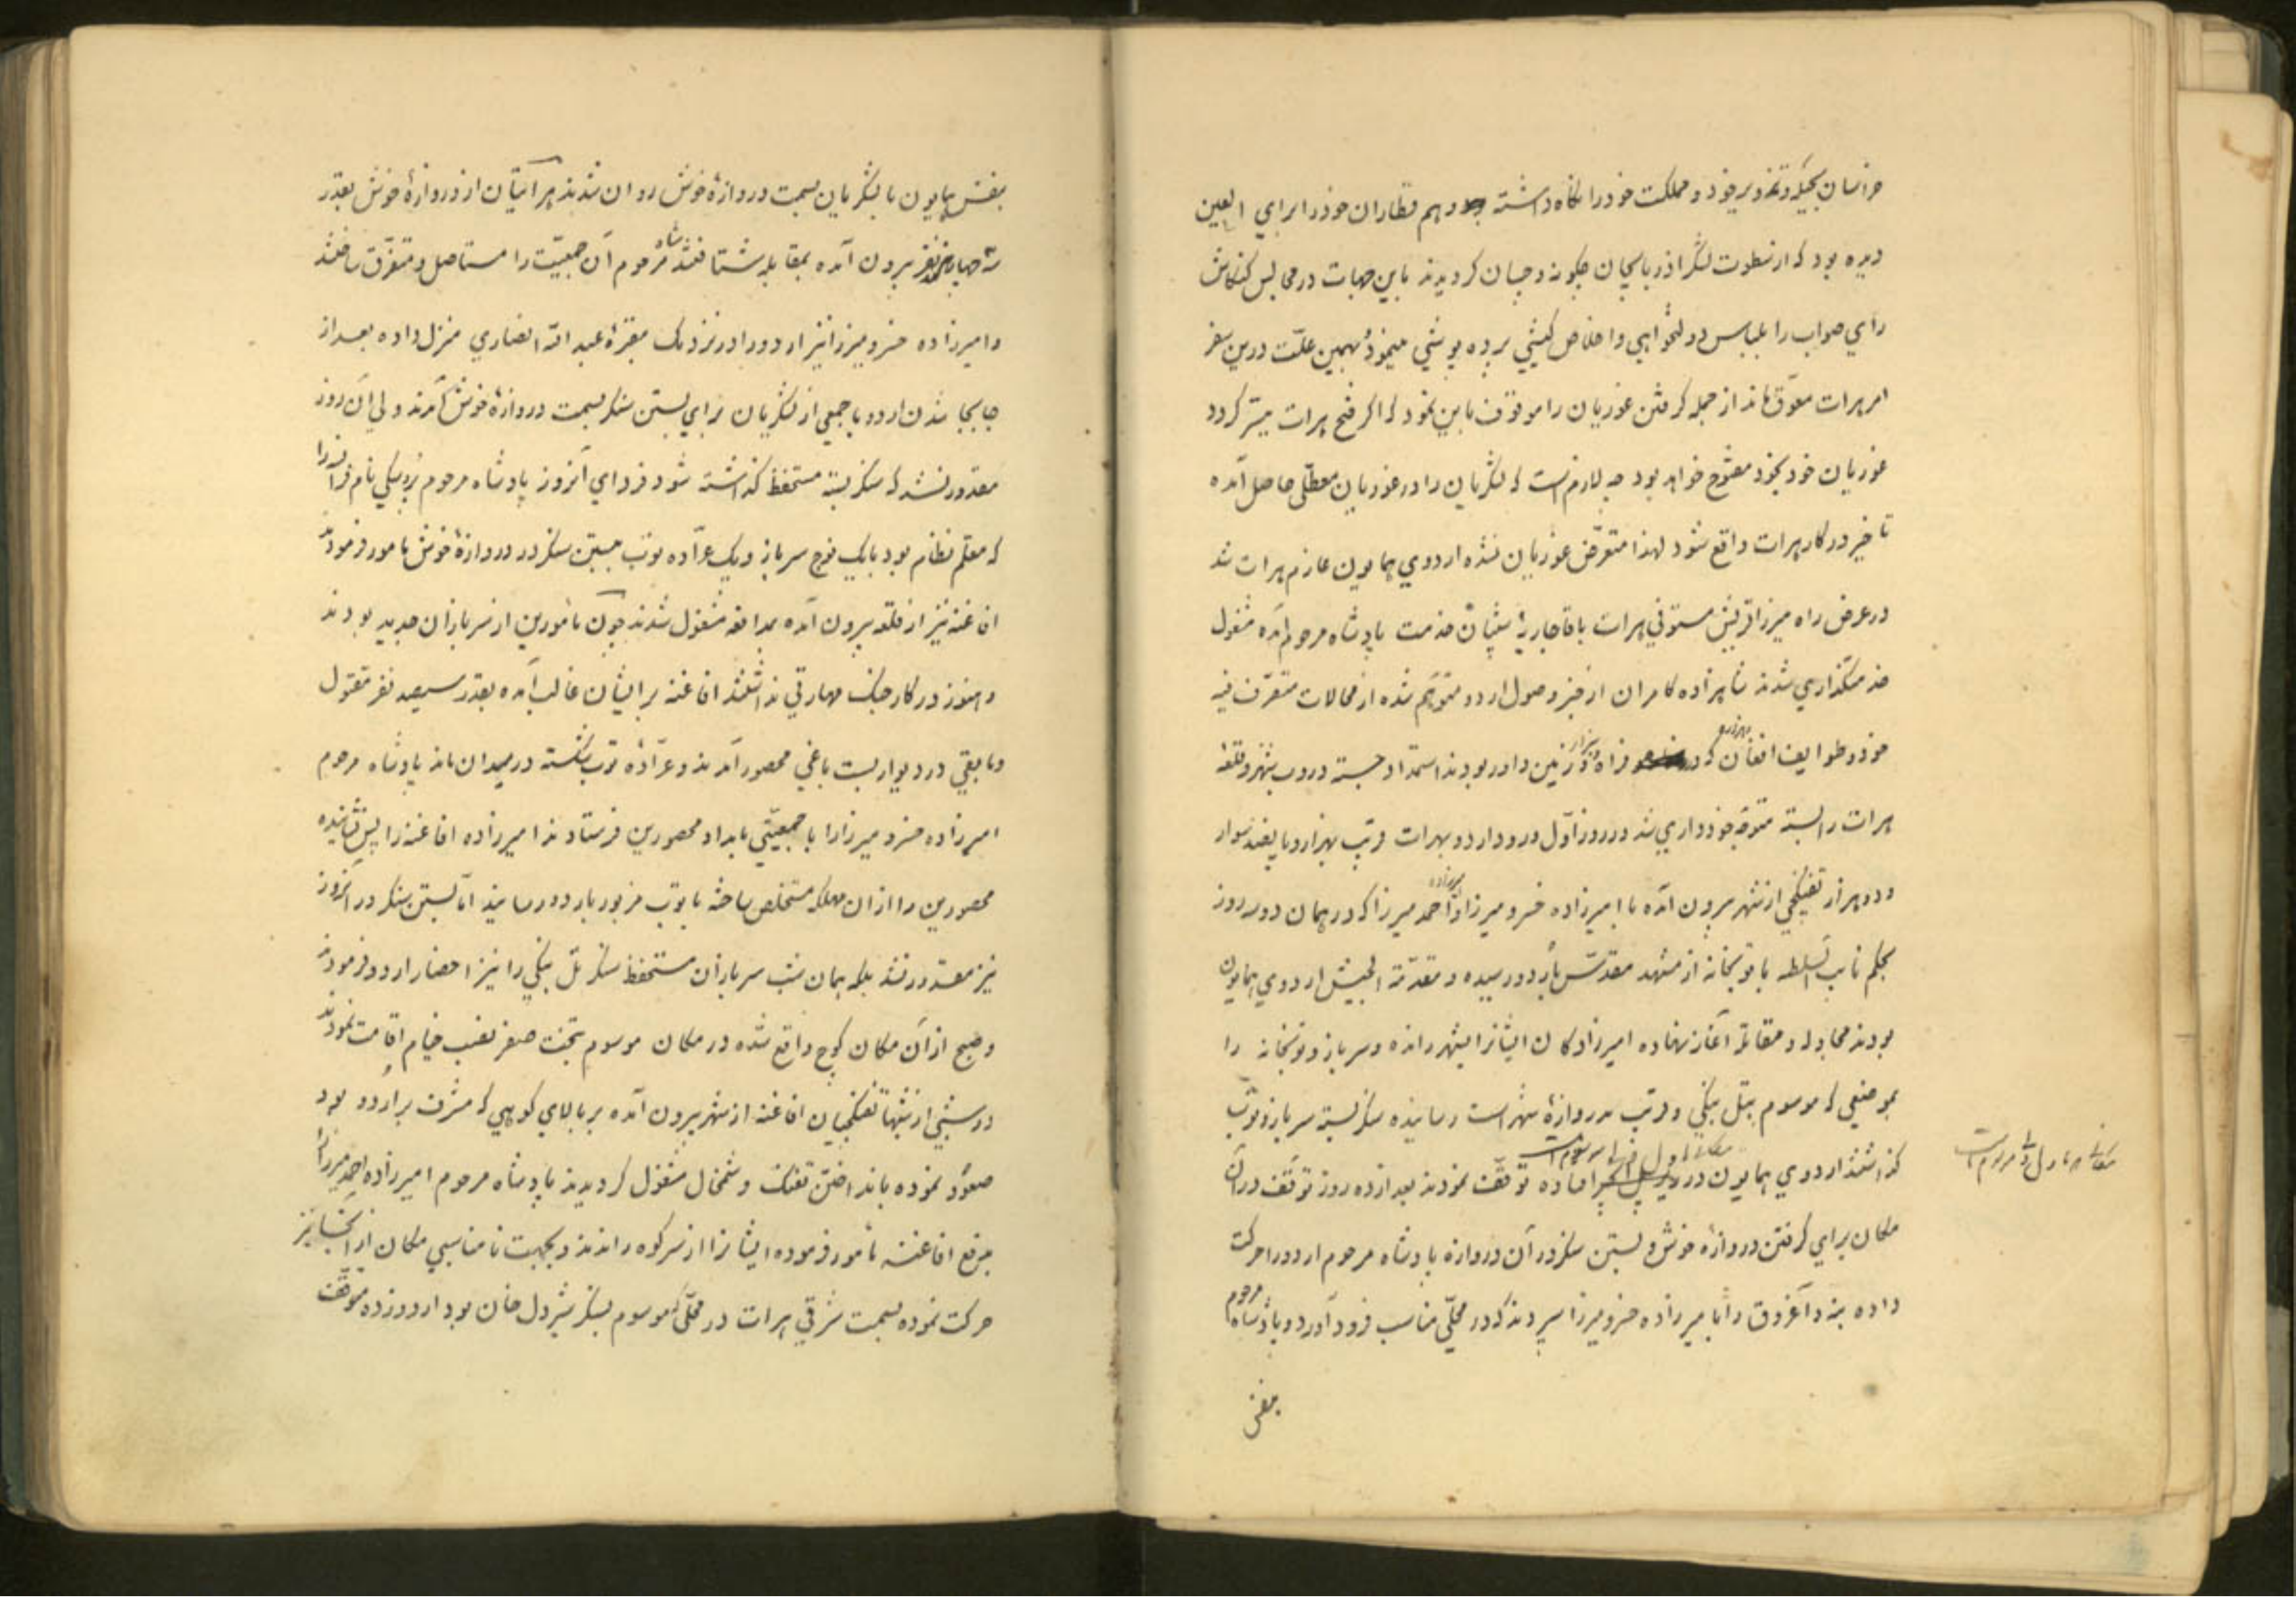 خراسان بحیله و تزویر خود و مملکت خود را نگاه داشته و هم قطاران خود را برای العین
دیده بود که از سطوت لشکر اذربایجان چگونه و چسان کردیدند باین جهات در مجالس کنکاش
رای صواب را بلباس دولتخواهی و اخلاص کیشی پرده پوشی مینمود بهمین علّت درین سفر
امر هرات معوّق ماند از جمله کرفتن غوریان را موقوف باین نمود که اگر فتح هرات میسّر کردد
غوریان خود بخود مفتوح خواهد بود چه لازم است که لشکریان را در غوریان معطّلی حاصل آمده
تاخیر در کار هرات واقع شود لهذا متعرّض غوریان نشده اردوی همایون عازم هرات شد
در عرض راه میرزا قریش مستوفی هرات با قاجاریهٔ بخدمت پادشاه مرحوم آمده مشغول
خدمتکذاری شدند شاهزاده کامران از خبر وصول اردو متوهّم شده از محالات متصرّف فیه
خود و طوایف افغان که در فراه و زمین داور بودند استمداد جسته دروب شهر و قلعه
هرات را بسته متوجّه خودداری شد در روز اوّل ورود اردو بهرات قریب بهزار و پانصد سوار
و دو هزار تفنکچی از شهر بیرون آمده با امیرزاده خسرو میرزا و امیرزاده احمد میرزا که در همان دو سه روز
بحکم نایب السلطنه با توپخانه از مشهد مقدّس باردو رسیده و مقدّمة الجیش اردوی همایون
بودند مجادله و مقاتله آغاز نهاده امیرزادکان ایشانرا بشهر رانده و سرباز و توپخانه را
بموضعی که موسوم بتل بنکی و قریب بدروازهٔ شهر است رسانیده سنکر بسته سرباز و توپ
کذاشتند اردوی همایون در افتاده توقّف نمودند بعد از ده روز توقّف در آن
مکان برای کرفتن دروازهٔ خوش و بستن سنکر در آن دروازه پادشاه مرحوم اردو را حرکت
داده بنه و آغروق را بامیرزاده خسرو میرزا سپردند که در محلّی مناسب فرود آورد و پادشاه مرحوم
بنفس
بنفس همایون با لشکریان بسمت دروازهٔ خوش روان شدند هراتیان از دروازهٔ خوش بقدر
سه چهار هزار نفر بیرون آمده بمقابله شتافتند شاه مرحوم آن جمعیّت را مستاصل و متفرّق ساختند
و امیرزاده خسرو میرزا نیز اردو را در نزدیک مقبرهٔ عبد الله انصاری منزل داده بعد از
جابجا شدن اردو با جمعی از لشکریان برای بستن سنکر بسمت دروازهٔ خوش آمدند ولی آن روز
مقدور نشد که سنکر بسته مستحفظ کذاشته شود فردای آنروز پادشاه مرحوم نام را
که معلّم نظام بود با یک فوج سرباز و یک عرّاده توپ ببستن سنکر در دروازهٔ خوش مامور فرمودند
افاغنه نیز از قلعه بیرون آمده بمدافعه مشغول شدند چون مامورین از سربازان جدید بودند
و هنوز در کار جنک مهارتی نداشتند افاغنه بر ایشان غالب آمده بقدر سیصد نفر مقتول
و مابقی در دیوار بست باغی محصور آمدند و عرّادهٔ توپ شکسته در میدان ماند پادشاه مرحوم
امیرزاده خسرو میرزا را با جمعیّتی بامداد محصورین فرستادند امیرزاده افاغنه را پس نشانیده
محصورین را از آن مهلکه مستخلص ساخته با توپ مزبور باردو رسانید امّا بستن سنکر در آنروز
نیز مقدور نشد بلکه همان شب سربازان مستحفظ سنکر تل بنکی را نیز احضار اردو فرمودند
و صبح از آن مکان کوچ واقع شده در مکان موسوم بتخت صفر نصب خیام اقامت نمودند
در شبی از شبها تفنکچیان افاغنه از شهر بیرون آمده بر بالای کوهی که مشرف بر اردو بود
صعود نموده بانداختن تفنک و شمخال مشغول کردیدند پادشاه مرحوم امیرزاده احمد میرزا را
بدفع افاغنه مامور فرموده ایشانرا از سر کوه راندند و بجهت نامناسبی مکان از آنجا نیز
حرکت نموده بسمت شرقی هرات در محلّی که موسوم بسنکر شیردل خان بود اردو زده متوقّف